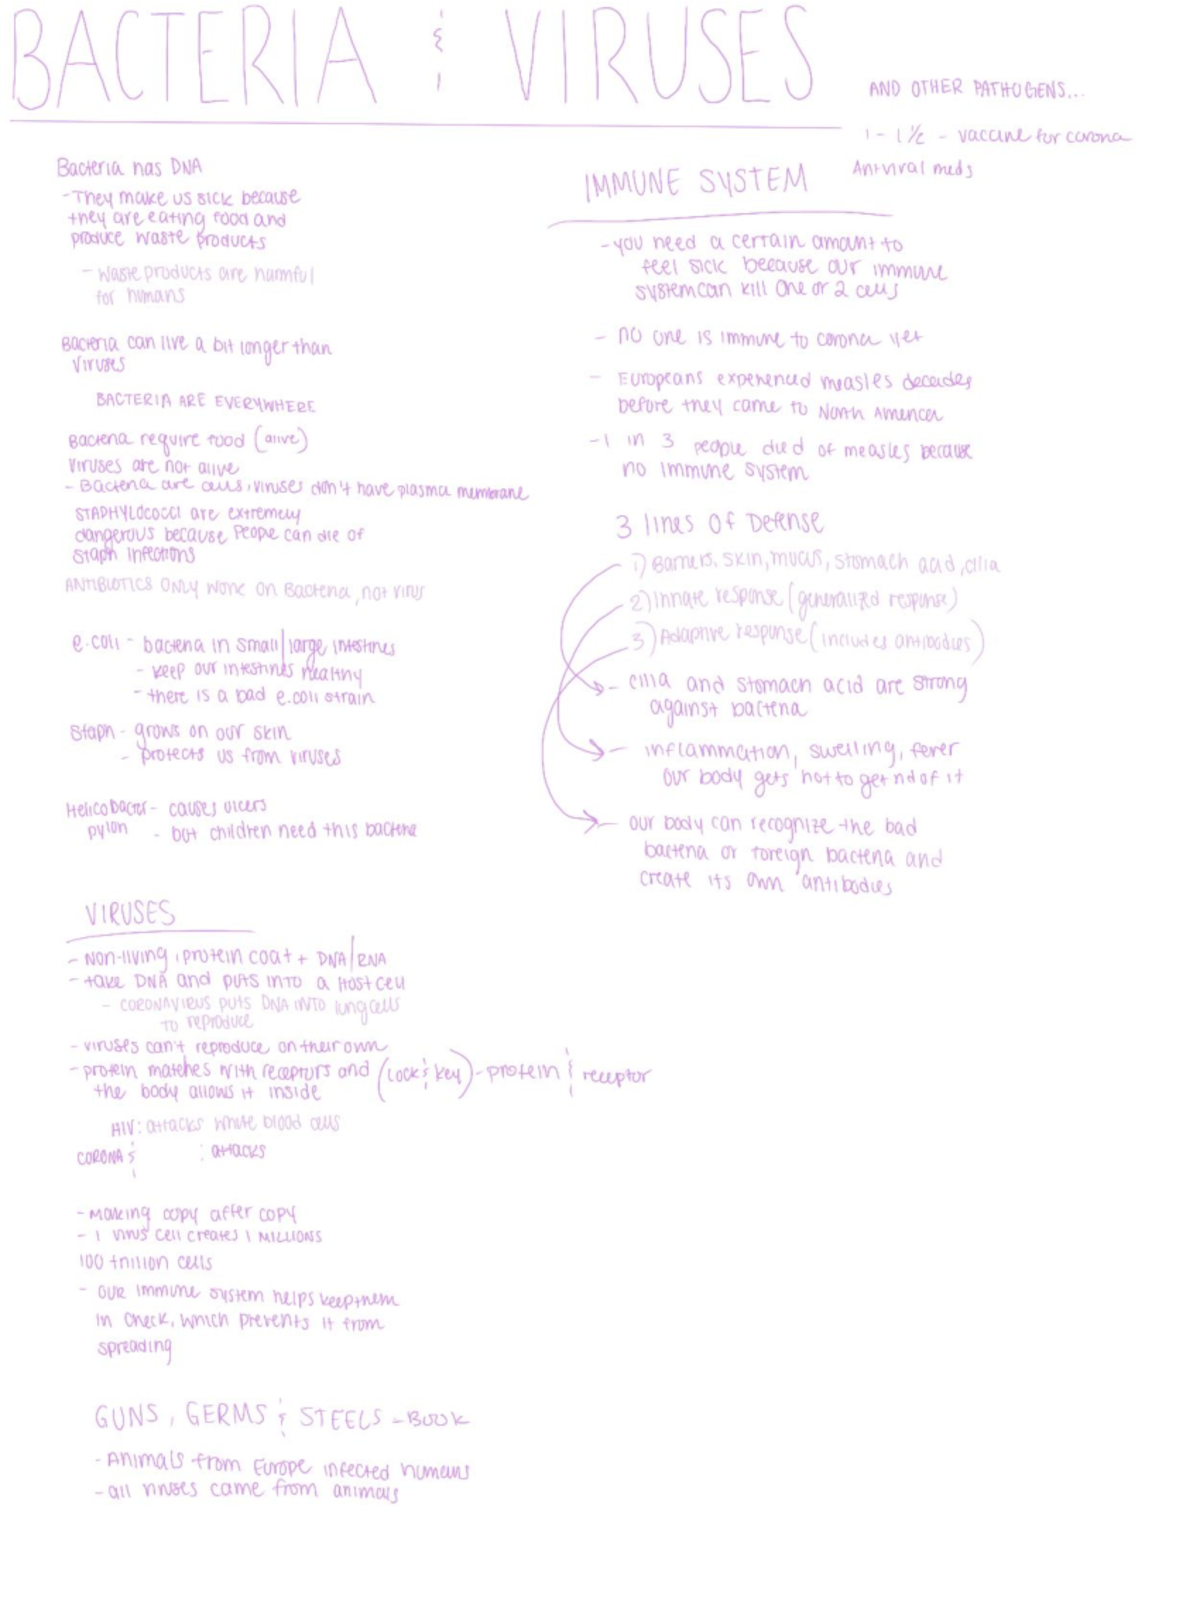 BACTERIA & VIRUSES
AND OTHER PATHOGENS...
1 - 1 1/2 - vaccine for corona
Antiviral meds
Bacteria has DNA
- They make us sick because
they are eating food and
produce waste products
- waste products are harmful
for humans
Bacteria can live a bit longer than
viruses
BACTERIA ARE EVERYWHERE
Bacteria require food (alive)
viruses are not alive
- Bacteria are cells, viruses don't have plasma membrane
STAPHYLOCOCCI are extremely
dangerous because people can die of
staph infections
ANTIBIOTICS ONLY WORK ON Bacteria, not virus
e.coli - bacteria in small/large intestines
- keep our intestines healthy
- there is a bad e.coli strain
Staph - grows on our skin
- protects us from viruses
Helicobacter - causes ulcers
pylori - but children need this bacteria
VIRUSES
- Non-living, protein coat + DNA/RNA
- take DNA and puts into a host cell
- CORONAVIRUS puts DNA INTO lung cells
to reproduce
- viruses can't reproduce on their own
- protein matches with receptors and (lock & key) - protein & receptor
the body allows it inside
HIV: attacks white blood cells
CORONA & : attacks
- Making copy after copy
- 1 virus cell creates 1 MILLIONS
100 trillion cells
- our immune system helps keep them
in check, which prevents it from
spreading
GUNS, GERMS & STEELS - BOOK
- Animals from Europe infected humans
- all viruses came from animals
IMMUNE SYSTEM
- you need a certain amount to
feel sick because our immune
system can kill one or 2 cells
- no one is immune to corona yet
- Europeans experienced measles decades
before they came to North America
- 1 in 3 people died of measles because
no immune system
3 lines of Defense
1) Barriers, skin, mucus, stomach acid, cilia
2) Innate response (generalized response)
3) Adaptive response (includes antibodies)
- cilia and stomach acid are strong
against bacteria
- inflammation, swelling, fever
our body gets hot to get rid of it
- our body can recognize the bad
bacteria or foreign bacteria and
create its own antibodies